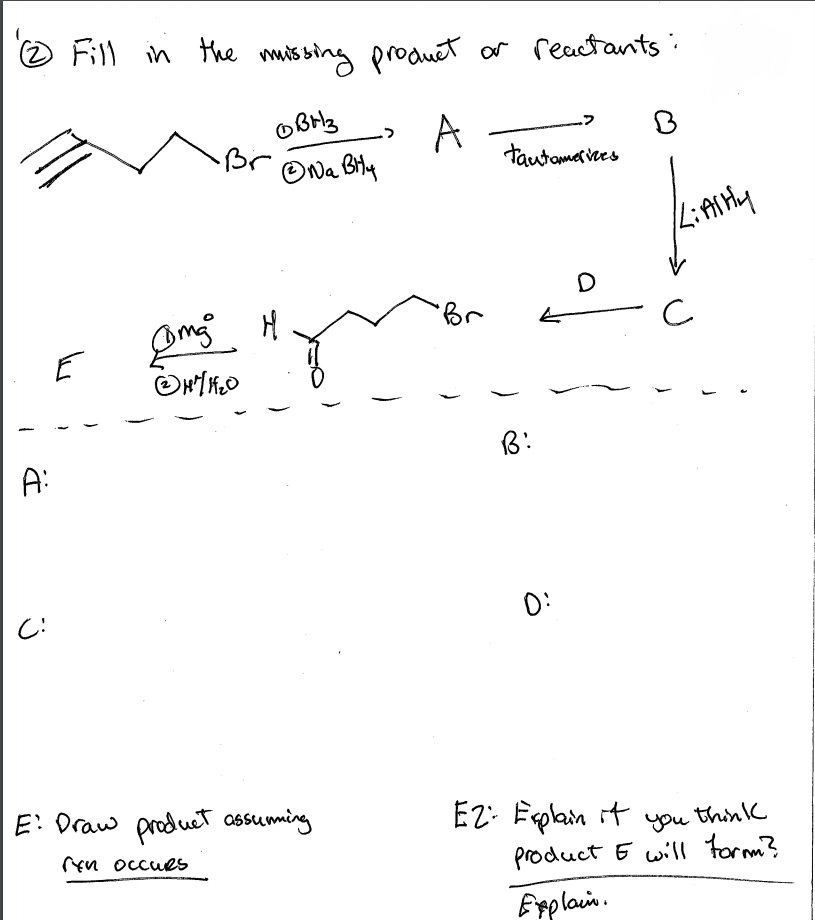 ② Fill in the missing product or reactants:
Br ① BH3 A B
② NaBH4 tautomerizes
LiAlH4
D
H Br C
O
E ① Mg°
② H+/H2O
B:
A:
D:
C:
E: Draw product assuming E2: Explain if you think
rxn occurs product E will form?
Explain.